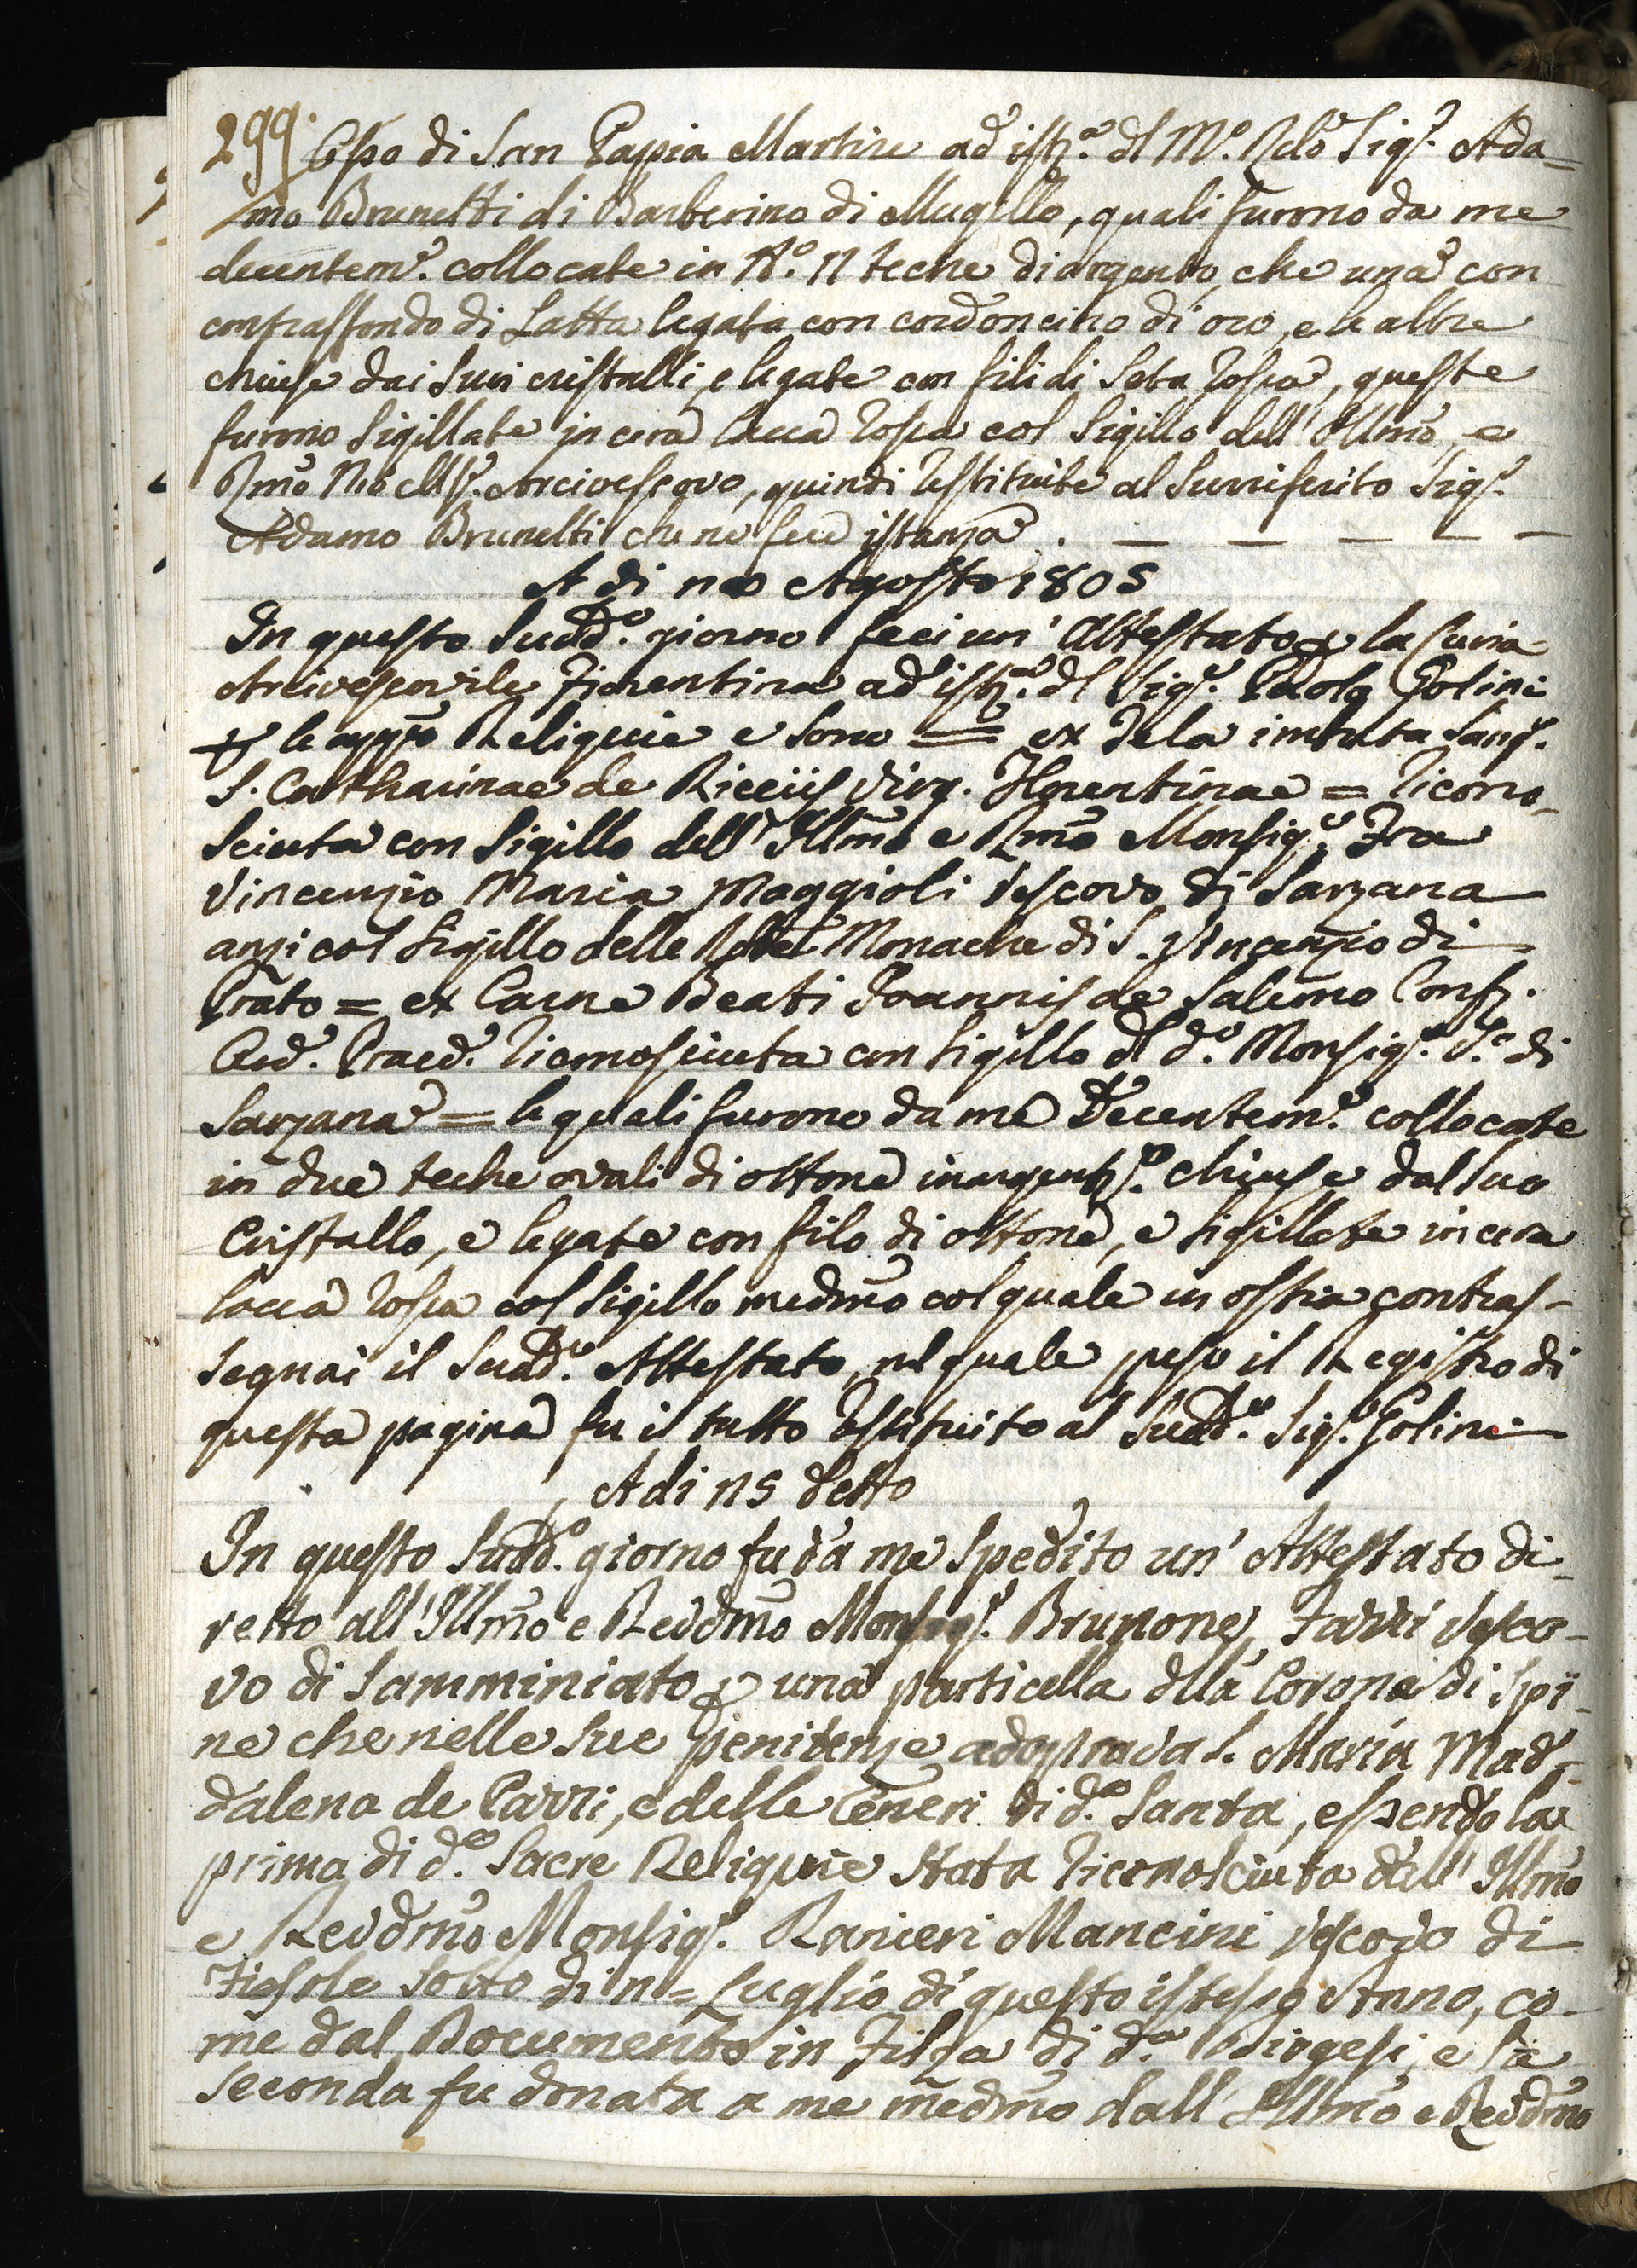 299. Osso di San Papia Martire ad istz.ª dl M.º Rdo Sig.r Ada=
mo Brunetti di Barberino di Mugello, quali furono da me
decentem.e collocate in N.º 11 teche di argento, che una con
contraffondo di Latta legata con cordoncino di oro, e le altre
chiuse dai suoi cristalli, e legate con fili di Seta rossa, queste
furono sigillate in cera lacca rossa col Sigillo dell' Illmo, e
Rmo Nro Msg.r Arcivescovo, quindi restituite al Surriferito Sig.r
Adamo Brunetti che ne fece istanza . — — — — —
A di Agosto 1805
In questo Sudd.º giorno feci un' Attestato p la Curia
Arcivescovile Fiorentina ad istz.ª dl Sig.r Paolo Golini
p le appo Reliquie e sono = ex Tela imbuta Sang.
S. Catharinae de Ricciis Virg. Florentinae = ricono-
sciuta con Sigillo dell' Illmo e Rmo Monsig.r Fra
Vincenzio Maria Maggioli Vescovo di Sarzana
anzi col Sigillo delle Monache di S. Vincenzio di
Prato = ex Carne Beati Joannis de Salerno Conf.
Ord. Praed. riconosciuta con Sigillo dl d.º Monsig.r V.º di
Sarzana = le quali furono da me Decentem.e collocate
in due teche ovali di ottone inargent. chiuse dal suo
Cristallo, e legate con filo di ottone, e sigillate in cera
lacca rossa col Sigillo medmo col quale in ostia contras-
segnai il Sudd.º Attestato, nl quale peso il Registro di
questa pagina fu il tutto restituito al Sudd.º Sig.r Golini
A di 15 detto
In questo Sudd.º giorno fu da me spedito un' Attestato di-
retto all' Illmo e Revdmo Monsig.r Brunone Fazzi Vesco-
vo di Samminiato p una particella dlla Corona di Spi-
ne che nelle sue penitenze adoprava S. Maria Mad-
dalena de Pazzi, e delle Ceneri di d.ª Santa, essendo la
prima di d.e Sacre Reliquie stata riconosciuta dall' Illmo
e Revdmo Monsig.r Ranieri Mancini Vescovo di
Fiesole sotto di 11 = Luglio di questo istesso Anno, co-
me dal Documento in Filza di d.ª Diogesi, e la
seconda fu donata a me medmo dall' Illmo e Revdmo